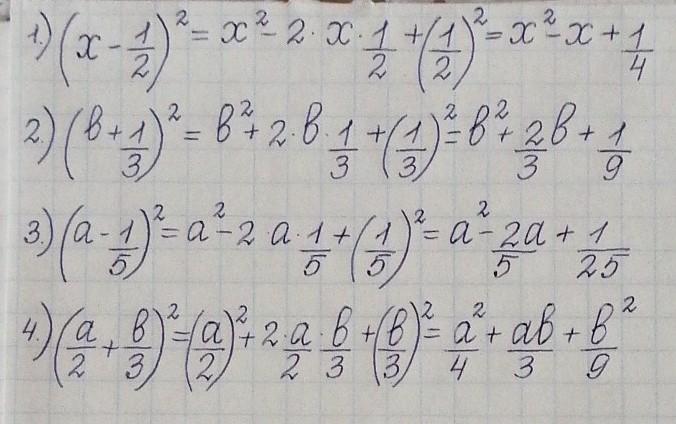 1.) (x - 1/2)² = x² - 2 · x · 1/2 + (1/2)² = x² - x + 1/4
2.) (b + 1/3)² = b² + 2 · b · 1/3 + (1/3)² = b² + 2/3 b + 1/9
3.) (a - 1/5)² = a² - 2 · a · 1/5 + (1/5)² = a² - 2a/5 + 1/25
4.) (a/2 + b/3)² = (a/2)² + 2 · a/2 · b/3 + (b/3)² = a²/4 + ab/3 + b²/9